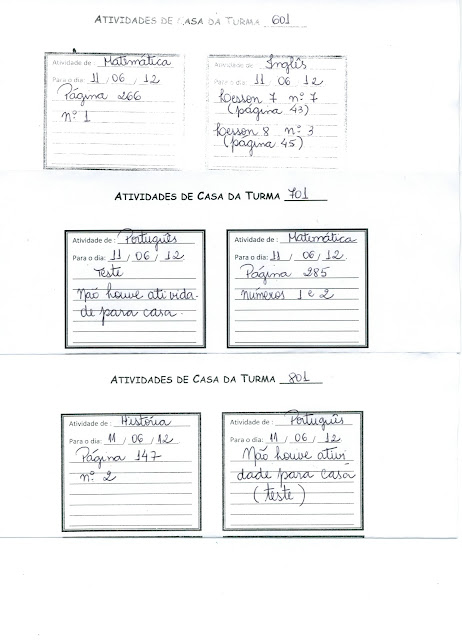 ATIVIDADES DE CASA DA TURMA 601
Atividade de : Matemática
Para o dia: 11 / 06 / 12
Página 266
nº 1
Atividade de : Inglês
Para o dia: 11 06 12
Lesson 7 nº 7
(página 43)
Lesson 8 nº 3
(página 45)
ATIVIDADES DE CASA DA TURMA 701
Atividade de : Português
Para o dia: 11 / 06 / 12
Teste
Não houve ativida-
de para casa.
Atividade de : Matemática
Para o dia: 11 / 06 / 12.
Página 285
números 1 e 2
ATIVIDADES DE CASA DA TURMA 801
Atividade de : História
Para o dia: 11 / 06 / 12
Página 147
nº 2
Atividade de : Português
Para o dia: 11 / 06 / 12
Não houve ativi
dade para casa
(teste)